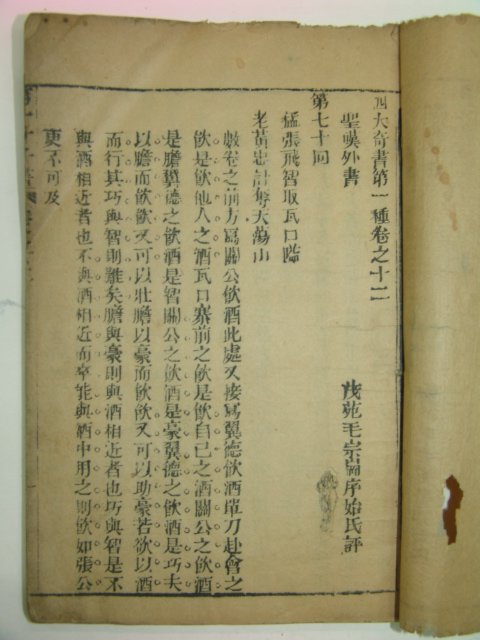 四大奇書第一種卷之十二
聖嘆外書
茂苑毛宗崗序始氏評
第七十回
猛張飛智取瓦口隘
老黃忠計奪天蕩山
數卷之前方寫關公飲酒此處又接寫翼德飲酒單刀赴會之
飲是飲他人之酒瓦口寨前之飲是飲自己之酒關公之飲酒
是膽翼德之飲酒是智關公之飲酒是豪翼德之飲酒是巧夫
以膽而飲飲又可以壯膽以豪而飲飲又可以助豪若欲以酒
而行其巧與智則難矣膽與豪則與酒相近者也巧與智是不
與酒相近者也不與酒相近而卒能與酒中用之則飲如張公
更不可及